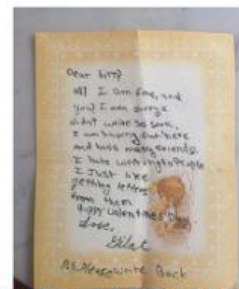 Dear
Hi! I am fine, and
you? I am sorry I
didnt write so soon,
I am having fun here
and have many friends.
I hate writing to People
I Just like
getting letters
from them
Happy valentines Day
Love,
Gilat
P.S. Please write Back